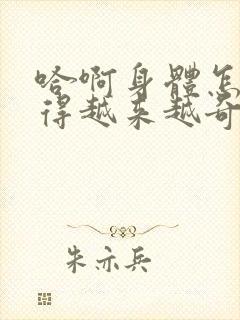 哈啊身體怎
得越来越奇
朱亦兵